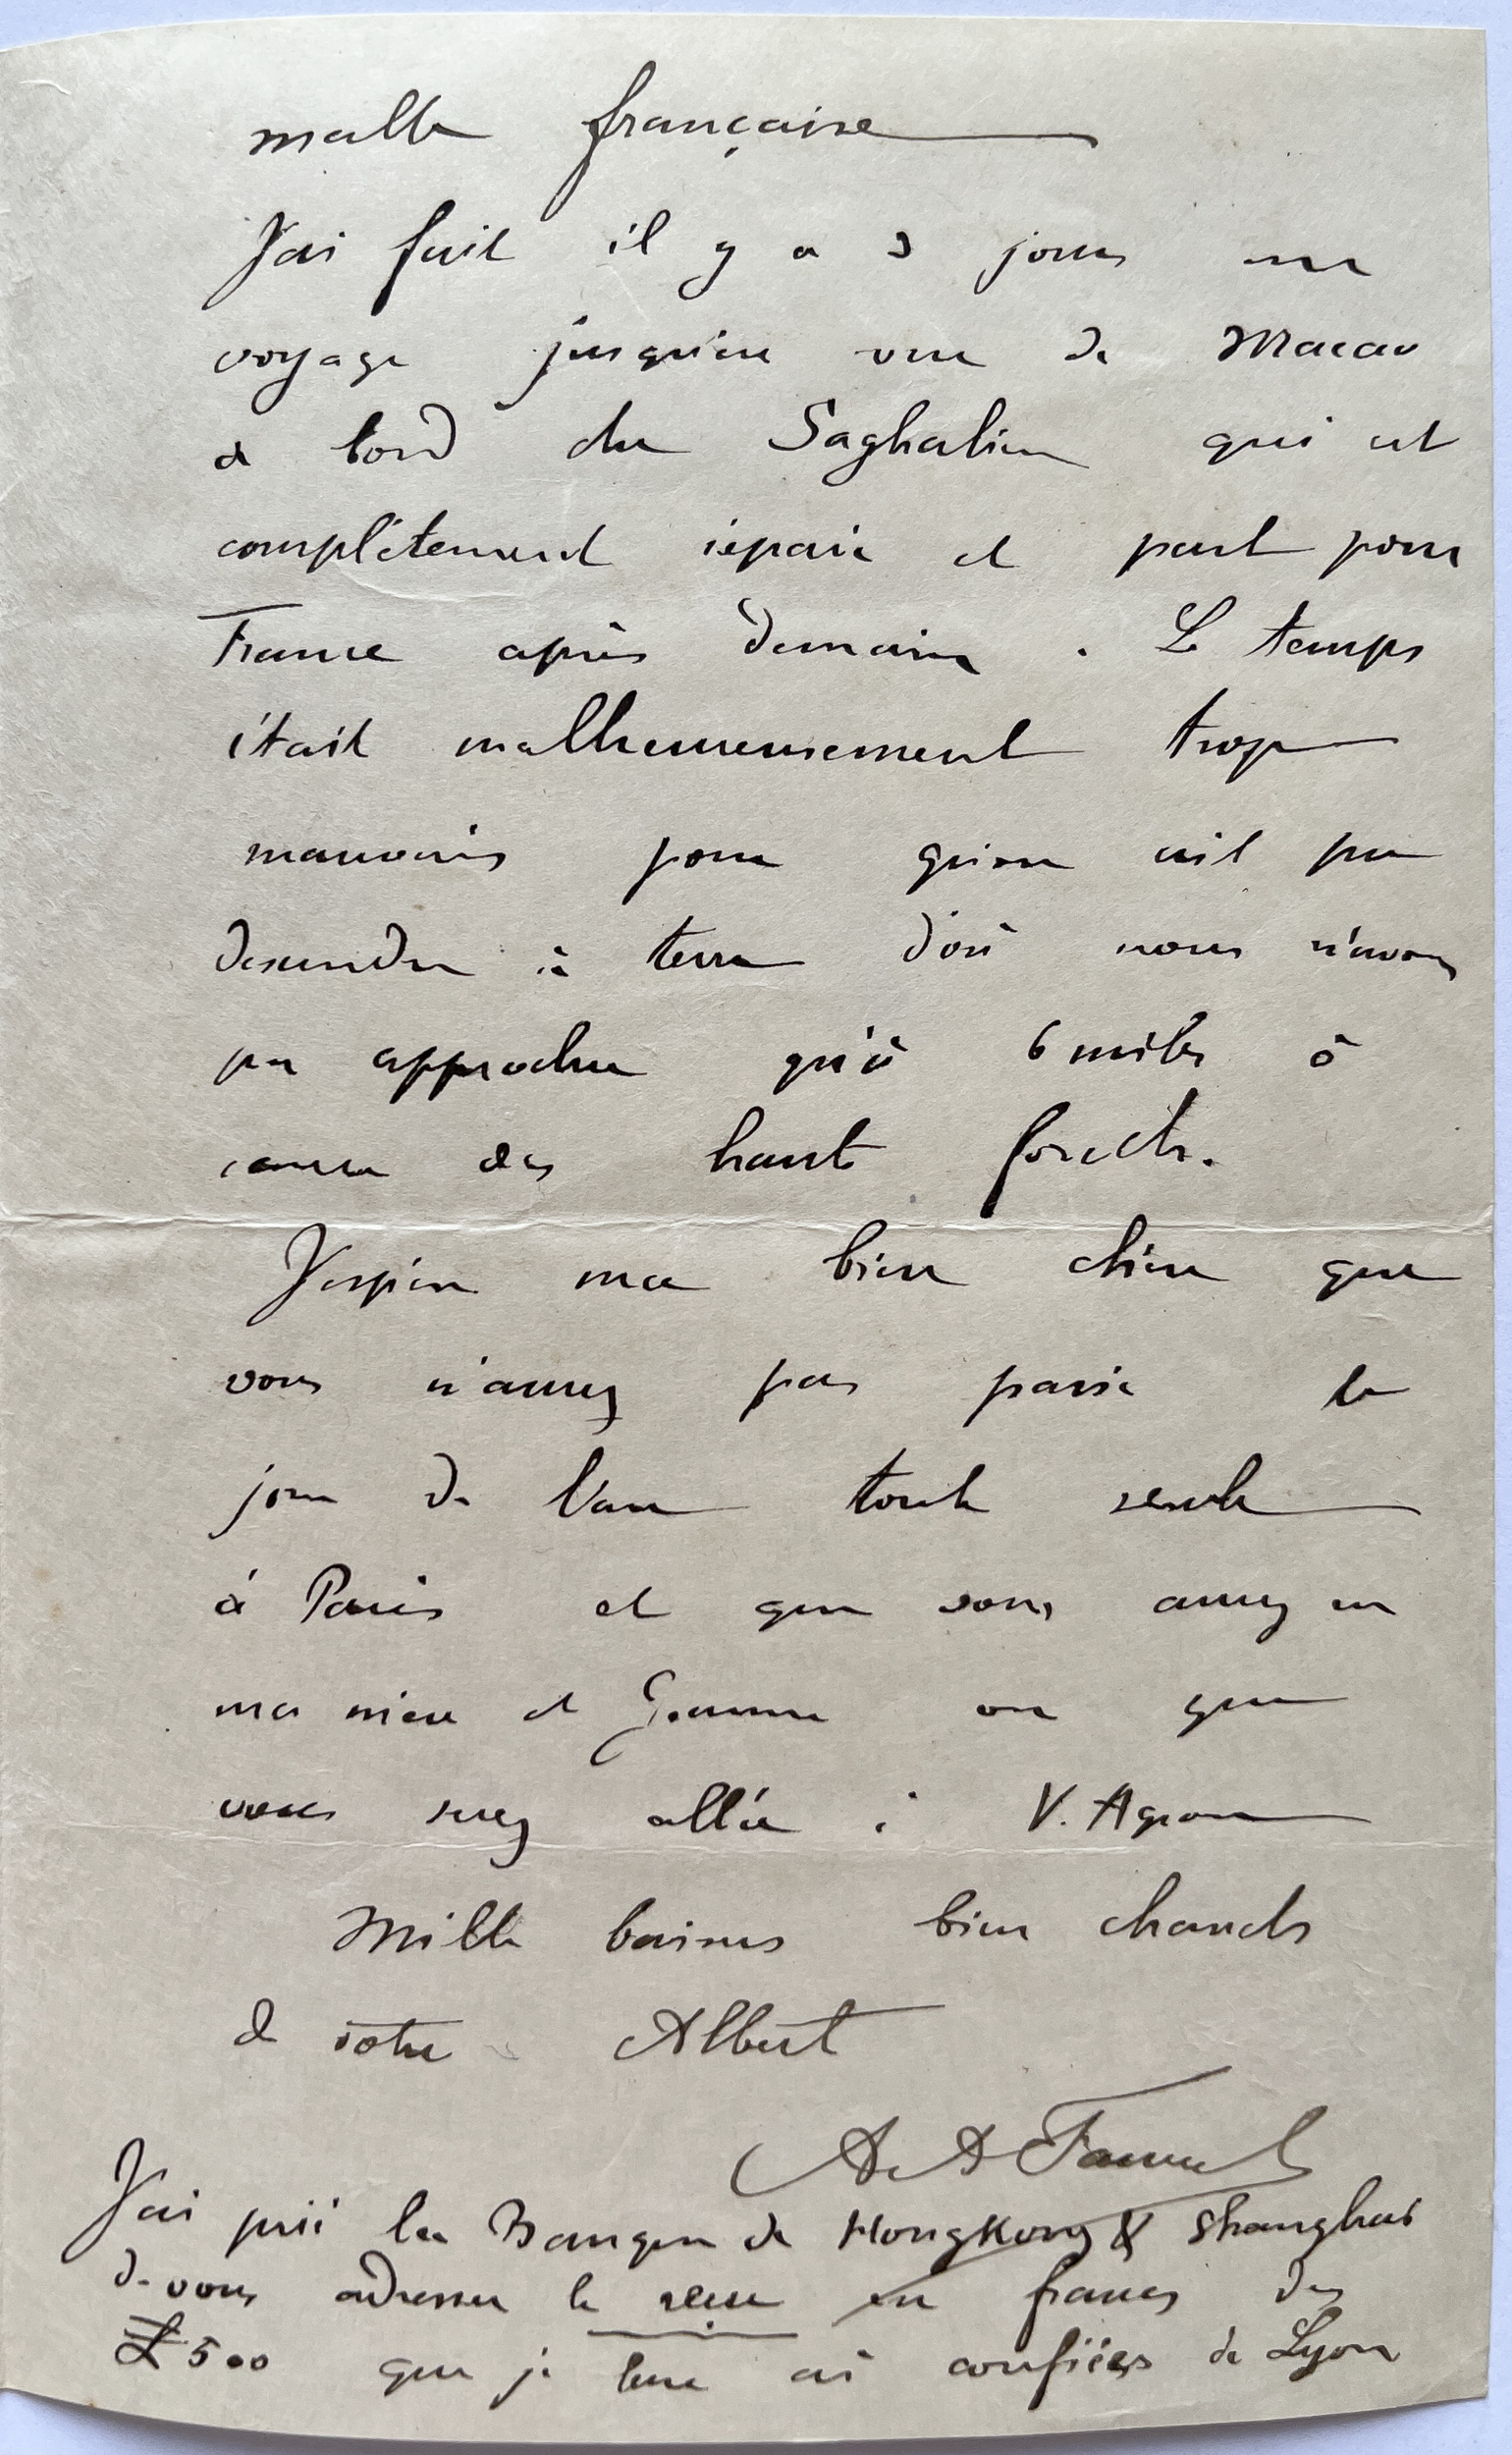 malle française
J'ai fait il y a 3 jours un
voyage jusqu'en vue de Macao
à bord du Saghalien qui est
complètement réparé et part pour
France après demain. Le temps
était malheureusement trop
mauvais pour qu'on ait pu
descendre à terre d'où nous n'avons
pu approcher qu'à 6 milles à
cause des hauts fonds.
J'espère ma bien chère que
vous n'aurez pas passé le
jour de l'an toute seule
à Paris et que vous aurez eu
ma mère et Jeanne ou que
vous serez allée à V. Agron
Mille baisers bien chauds
de votre Albert
A A
J'ai prié la Banque de HongKong & Shanghai
de vous adresser le en francs des
£ 500 que je leur ai confiées de Lyon